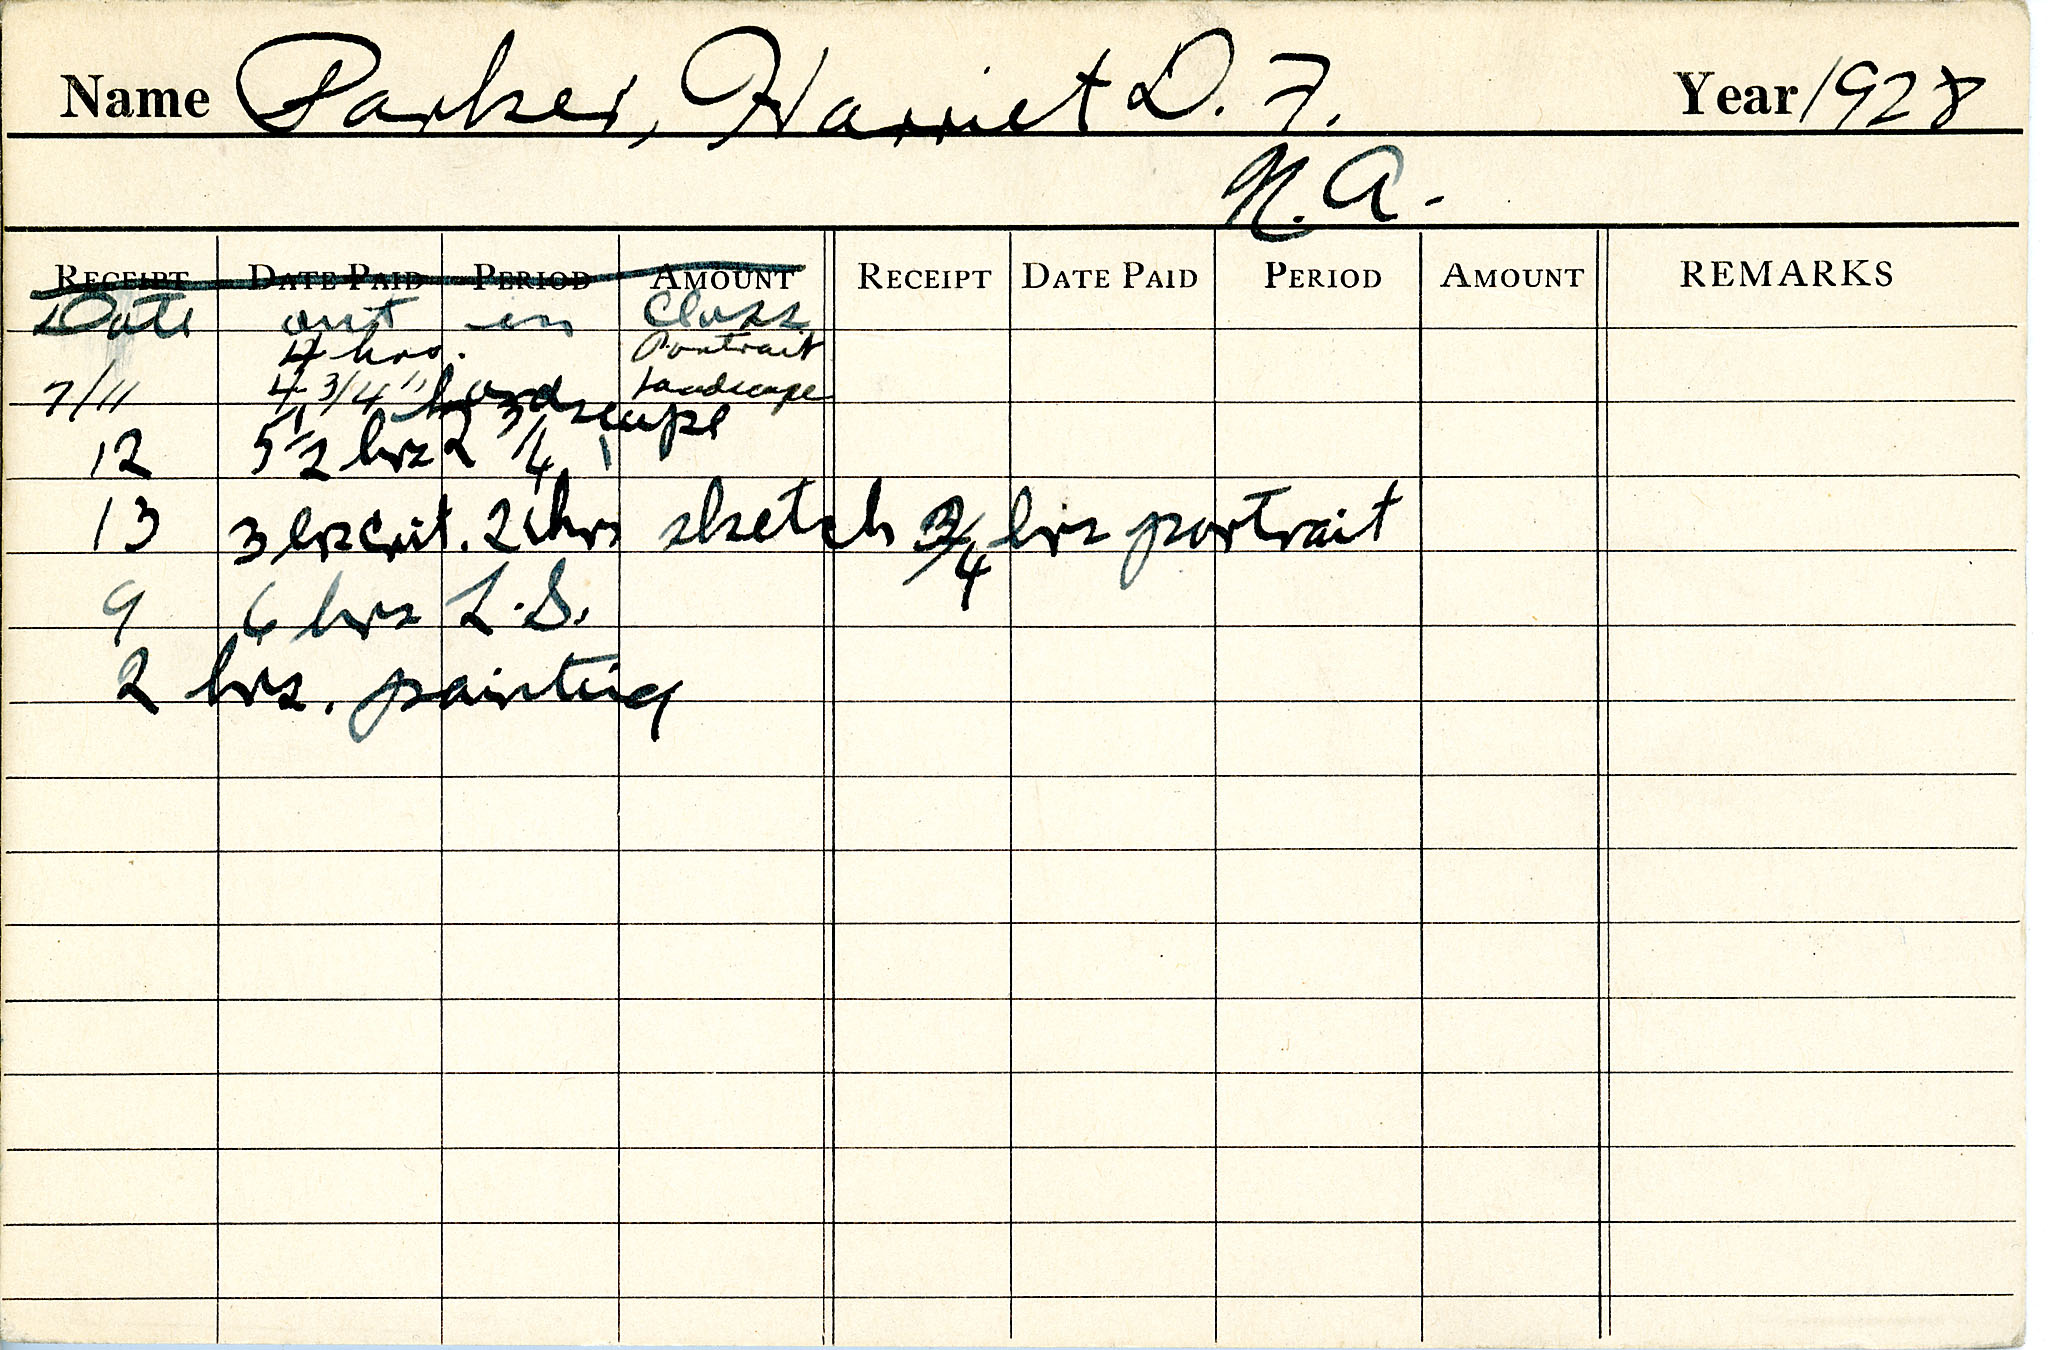 Name Parker, Harriet D. F. Year 1928
N.A.
RECEIPT DATE PAID PERIOD AMOUNT RECEIPT DATE PAID PERIOD AMOUNT REMARKS
Date out in Class
4 hrs. Portrait
7/11 4 3/4 " Landscape
Landscape
12 5 1/2 hrs 2 3/4
13 3 hrs crit. 2 hrs sketch 3/4 hrs portrait
9 6 hrs L.S.
2 hrs. painting